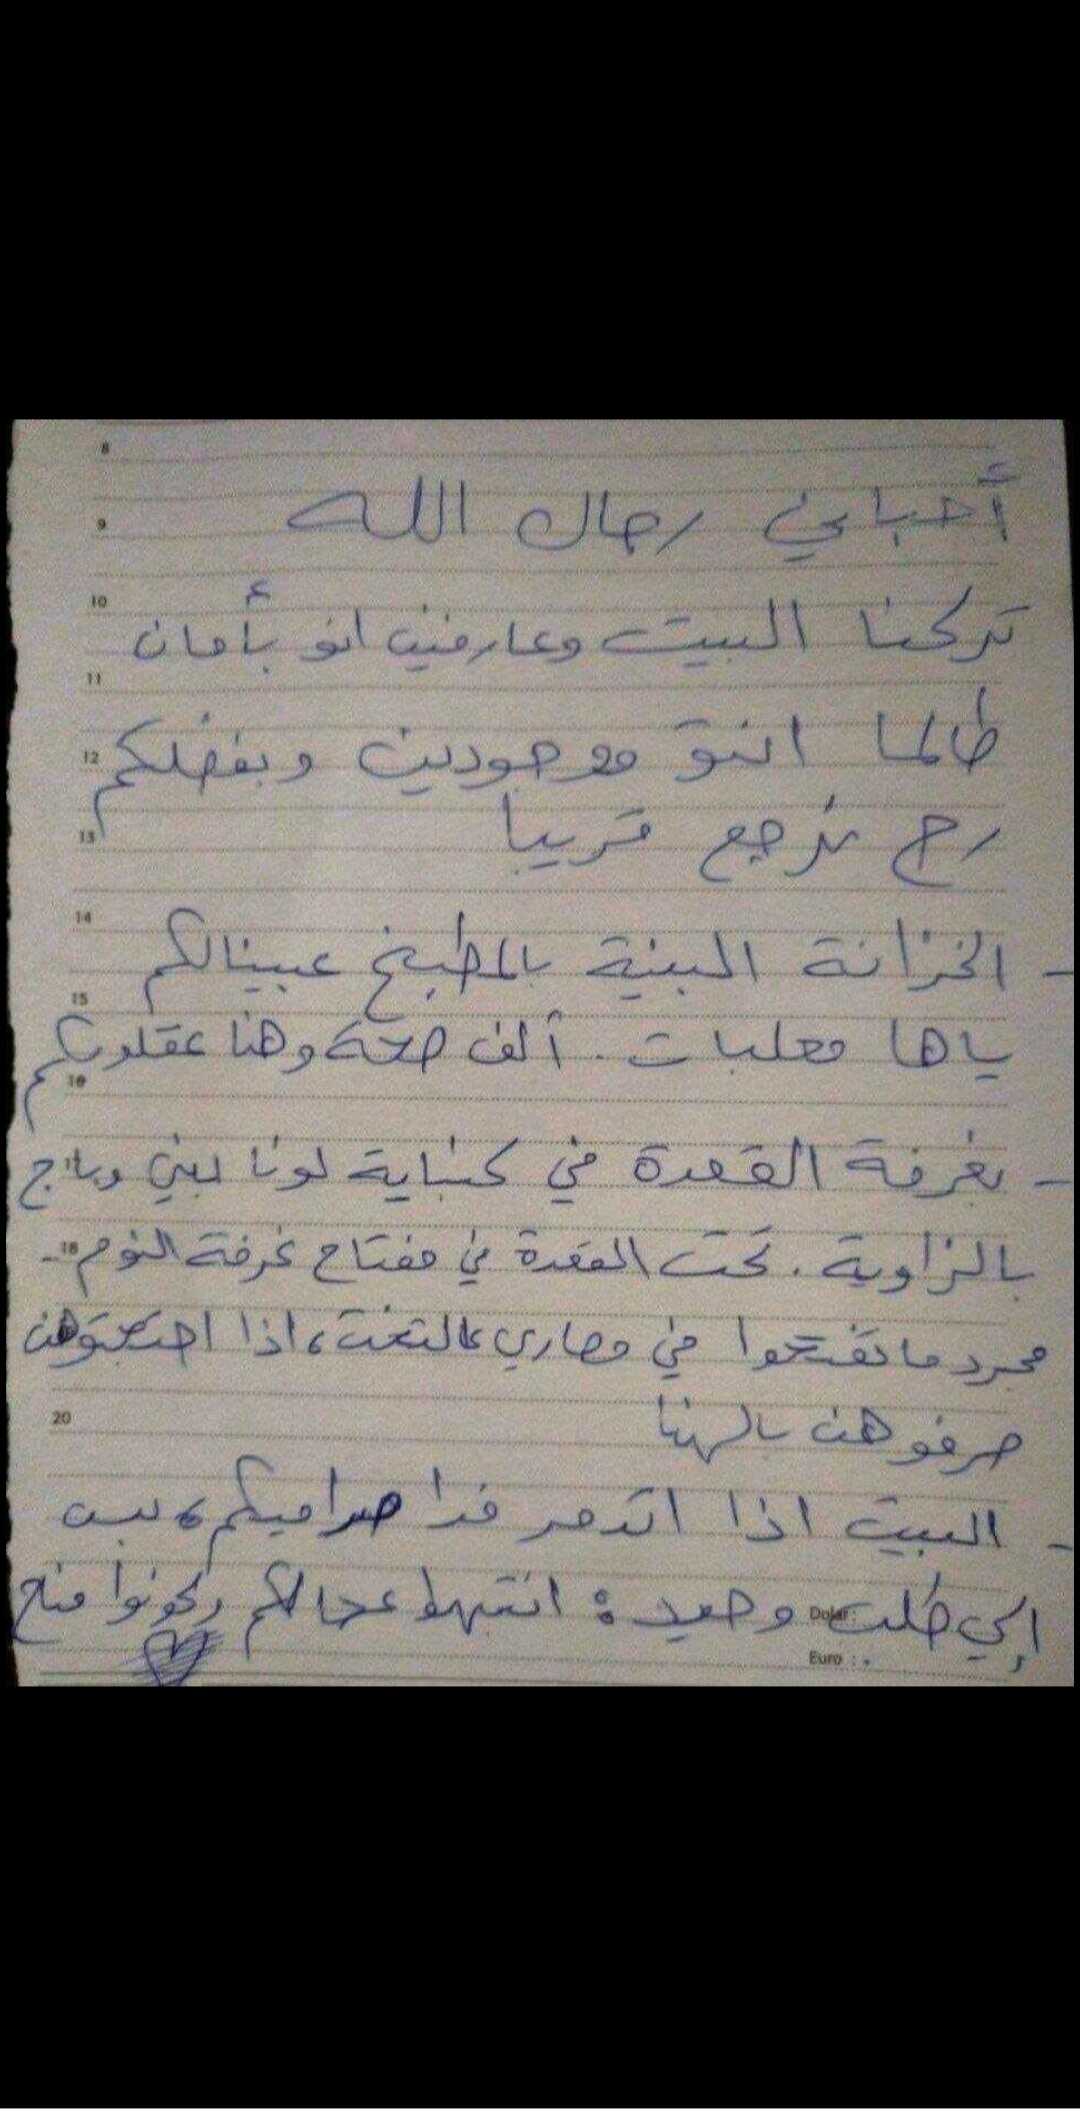 8
أحبابي رجال الله
9
10
تركنا البيت وعارفين انو بأمان
11
طالما انتو موجودين وبفضلكم
12
رح نرجع قريبا
13
14
- الخزانة البنية بالمطبخ عبينالكم
15
ياها معلبات. ألف صحة وهنا عقلوبكم
16
- بغرفة القعدة في كنباية لونا بني وباج
بالزاوية. تحت المقعدة في مفتاح غرفة النوم -
18
مجرد ما تفتحوا في مصاري عالتخت، اذا احتجتوهن
صرفوهن بالهنا
20
- البيت اذا اتدمر فدا صراميكم، بس
إلي طلب وحيد: انتبهوا عحالكم وكونوا مناح
Dolar :
Euro :